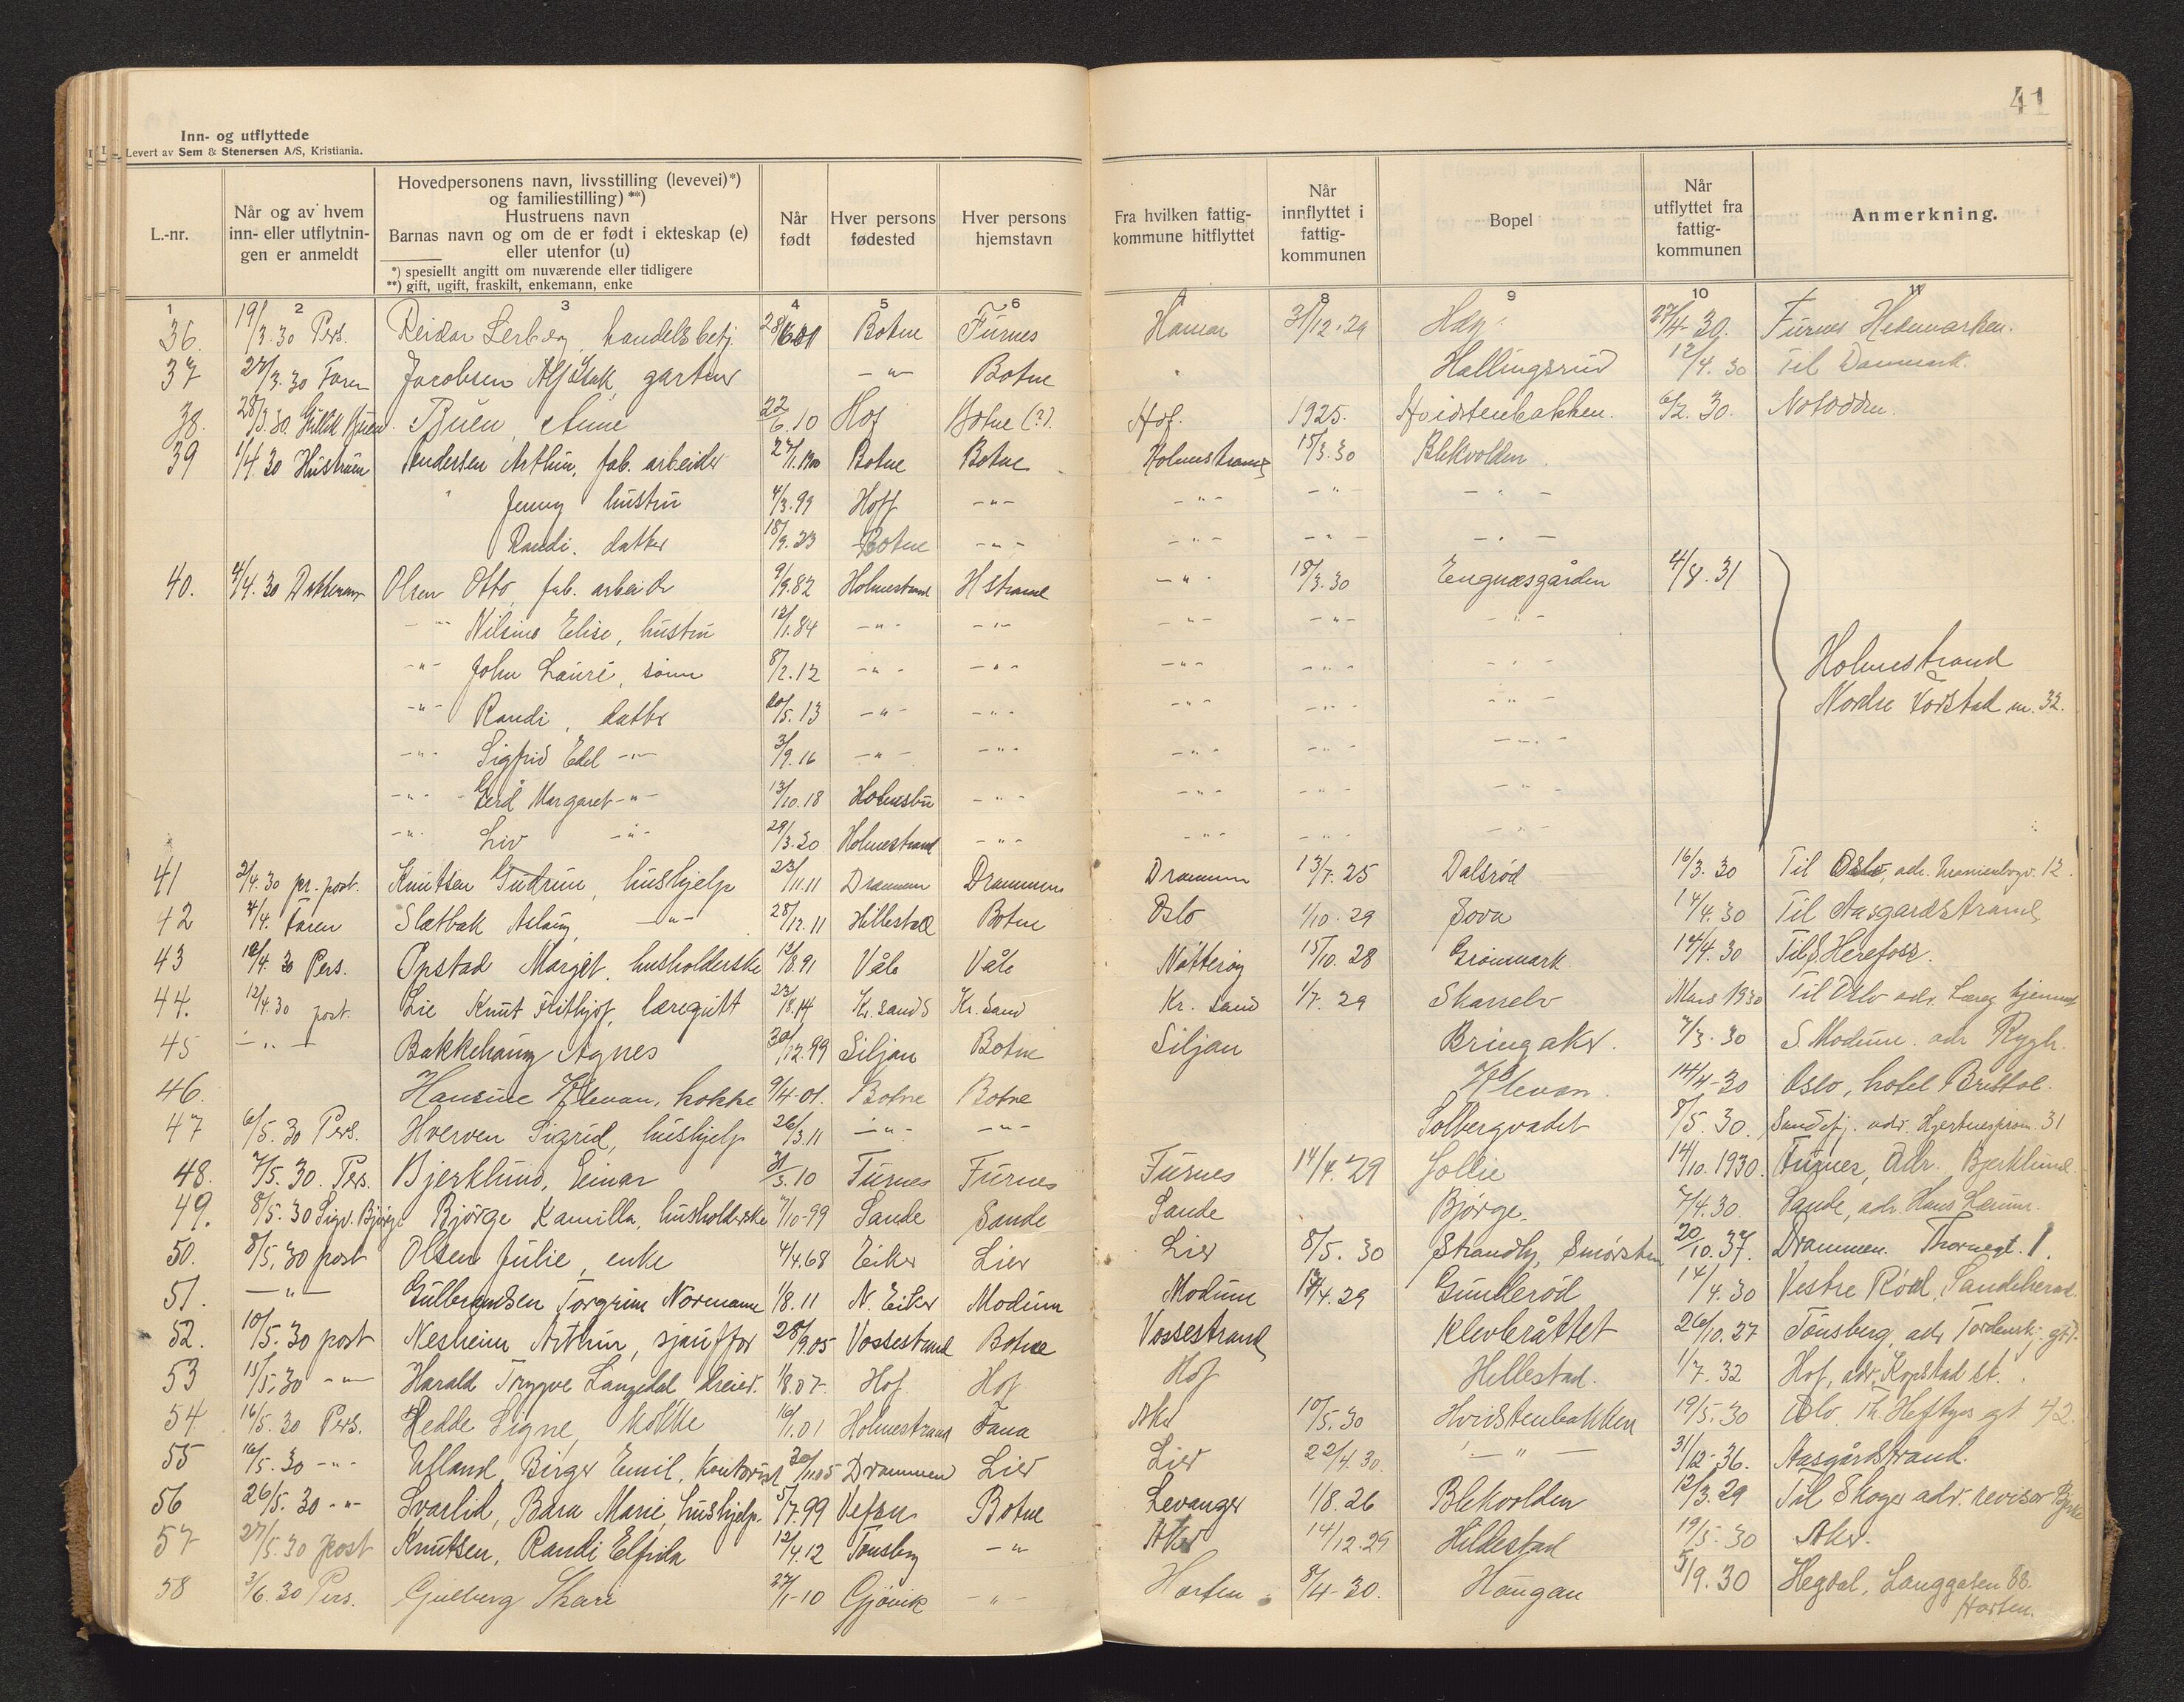 41
Inn- og utflyttede
Levert av Sem & Stenersen A/S, Kristiania.
L.-nr.
Når og av hvem inn- eller utflytnin- gen er anmeldt
Hovedpersonens navn, livsstilling (levevei)*)
og familiestilling) **)
Hustruens navn
Barnas navn og om de er født i ekteskap (e)
eller utenfor (u)
*) spesiellt angitt om nuværende eller tidligere
**) gift, ugift, fraskilt, enkemann, enke
Når født
Hver persons fødested
Hver persons hjemstavn
Fra hvilken fattig- kommune hitflyttet
Når innflyttet i fattig- kommunen
Bopel
Når utflyttet fra fattig- kommunen
Anmerkning.
1 2 3 4 5 6 7 8 9 10 11
36. 19/3.30 Pers. Reidar handelsbetj. 28/6 01 Botne Furnes Hamar 31/12.29 27/4 30. Furnes Hedmarken.
37 27/3.30 Faren Jacobsen gartner - " - Botne Hallingsrud 12/4.30 Til Danmark.
38. 28/3.30. Buen, Anne 22/6.10 Hof Botne (?). Hof. 1925. Hvidstenbakken. 6/2.30. Notodden.
39 1/4.30 Hustruen Andersen Arthur, fab. arbeider 27/1.1900 Botne Botne Holmestrand 15/3.30 Blekvolden
" Jenny hustru 4/3.99 Hoff - " - - " - - " - - " -
Randi. datter 18/9.23 Botne - " - - " - - " - - " -
40. 4/4.30 Datteren Olsen Otto, fab. arbeider 9/9.82 Holmestrand Hstrand - " - 18/3.30 Engnæsgården 4/8.31
- " - Nilsine Elise, hustru 12/1.84 - " - - " - - " - - " - - " -
- " - John Lauri, sønn 8/2.12 - " - - " - - " - - " - - " -
Holmestrand
- " - Randi, datter 20/5.13 - " - - " - - " - - " - - " -
Nordre Torstad nr. 32.
- " - Sigfrid Edel - " - 3/9.16 - " - - " - - " - - " - - " -
- " - Gerd Margaret - " - 13/10.18 Holmsbu - " - - " - - " - - " -
- " - Liv - " - 29/3.20 Holmestrand - " - - " - - " - - " -
41 2/4.30 pr. post. Knutsen Gudrun, hushjelp 23/11.11 Drammen Drammen Drammen 13/7.25 Dalsrød 16/3.30 Til Oslo, adr. Uranienborgv. 12.
42 4/4. Faren Slætbak Aslaug, - " - 28/12.11 Hillestad Botne Oslo 1/10.29 Sova 14/4.30 Til Aasgardstrand
43 10/4.30 Pers. Opstad Margit, husholderske 12/8.91 Våle Våle Nøtterøy 15/10.28 Grønmark 14/4.30 Til Herefoss.
44. 12/4.30 post. Lie Knut Frithjof, læregutt 23/8.14 Kr. sands Kr. sand Kr. sand 1/7.29 Skarrelv Mars 1930 Til Oslo adr.
45 - " - Bakkehaug Agnes 30/12.99 Siljan Botne Siljan Bringaker. 7/3.30 S. Modum. adr Rygh.
46. Hansine Klevan, kokke 9/4-01. Botne Botne Klevan. 14/4-30 Oslo, hotel Bristol.
47 6/5.30 Pers. Hverven Sigrid, hushjelp 26/3.11 - " - - " - Solbergvadet 8/5.30. Sandefj. adr. Hjertnesprom. 31
48. 7/5.30. Pers. Bjerklund, Einar 31/3.10 Furnes Furnes Furnes 14/4.29 Jollie 14/10.1930. Furnes, Adr. Bjerklund.
49. 8/5.30 Sigv. Bjørge Bjørge Kamilla, husholderske 7/10-99 Sande Sande Sande Bjørge. 7/4.30. Sande, adr. Hans Lærum.
50. 8/5.30 post Olsen Julie, enke 4/4.68 Eiker Lier Lier 8/5.30 Strandby, 20/10.37. Drammen. Thornegt. 1.
51. - " - Gulbrandsen Torgrim Normann 1/8.11 N. Eiker Modum Modum 14/4.29 Gunderød 14/4.30 Vestre Rød, Sandeherad.
52. 10/5.30 post Nesheim Arthur, sjauffør 28/9.05 Vossestrand Botne Vossestrand Klevbråttet 26/10.27 Tønsberg, adr Tordenskj. gt
53 15/5.30 - " - Harald Trygve Langedal, dreier. 1/8.07 Hof Hof Hof Hillestad. 1/7.32 Hof, adr. Kopstad st.
54 16/5.30 Pers. Hedde Signe, kokke 16/1.01 Holmestrand Fana Aker 10/5.30 Hvidstenbakken 19/5.30 Oslo Th. Heftyes gt. 42.
55 16/5.30 - " - Ulland, Birger Emil, Kontorist 20/11.05 Drammen Lier Lier 22/4.30. - " - 31/12-36. Aasgårdstrand.
56 26/5.30 - " - Svarlid, Bara Marie, hushjelp. 5/7.99 Vefsn Botne Levanger 1/8.26 Blekvolden 12/3.29 Til Skoger adr. revisor
57 27/5.30 post Knutsen, Randi Elfrida 12/4.12 Tønsberg - " - Aker 14/12.29 Hillestad 19/5.30 Aker.
58 3/6.30 Pers. Gjulberg Skari 27/1-10 Gjøvik - " - Horten 8/4-30. Haugan 5/9.30 Hegdal, Langgaten 88.
Horten.